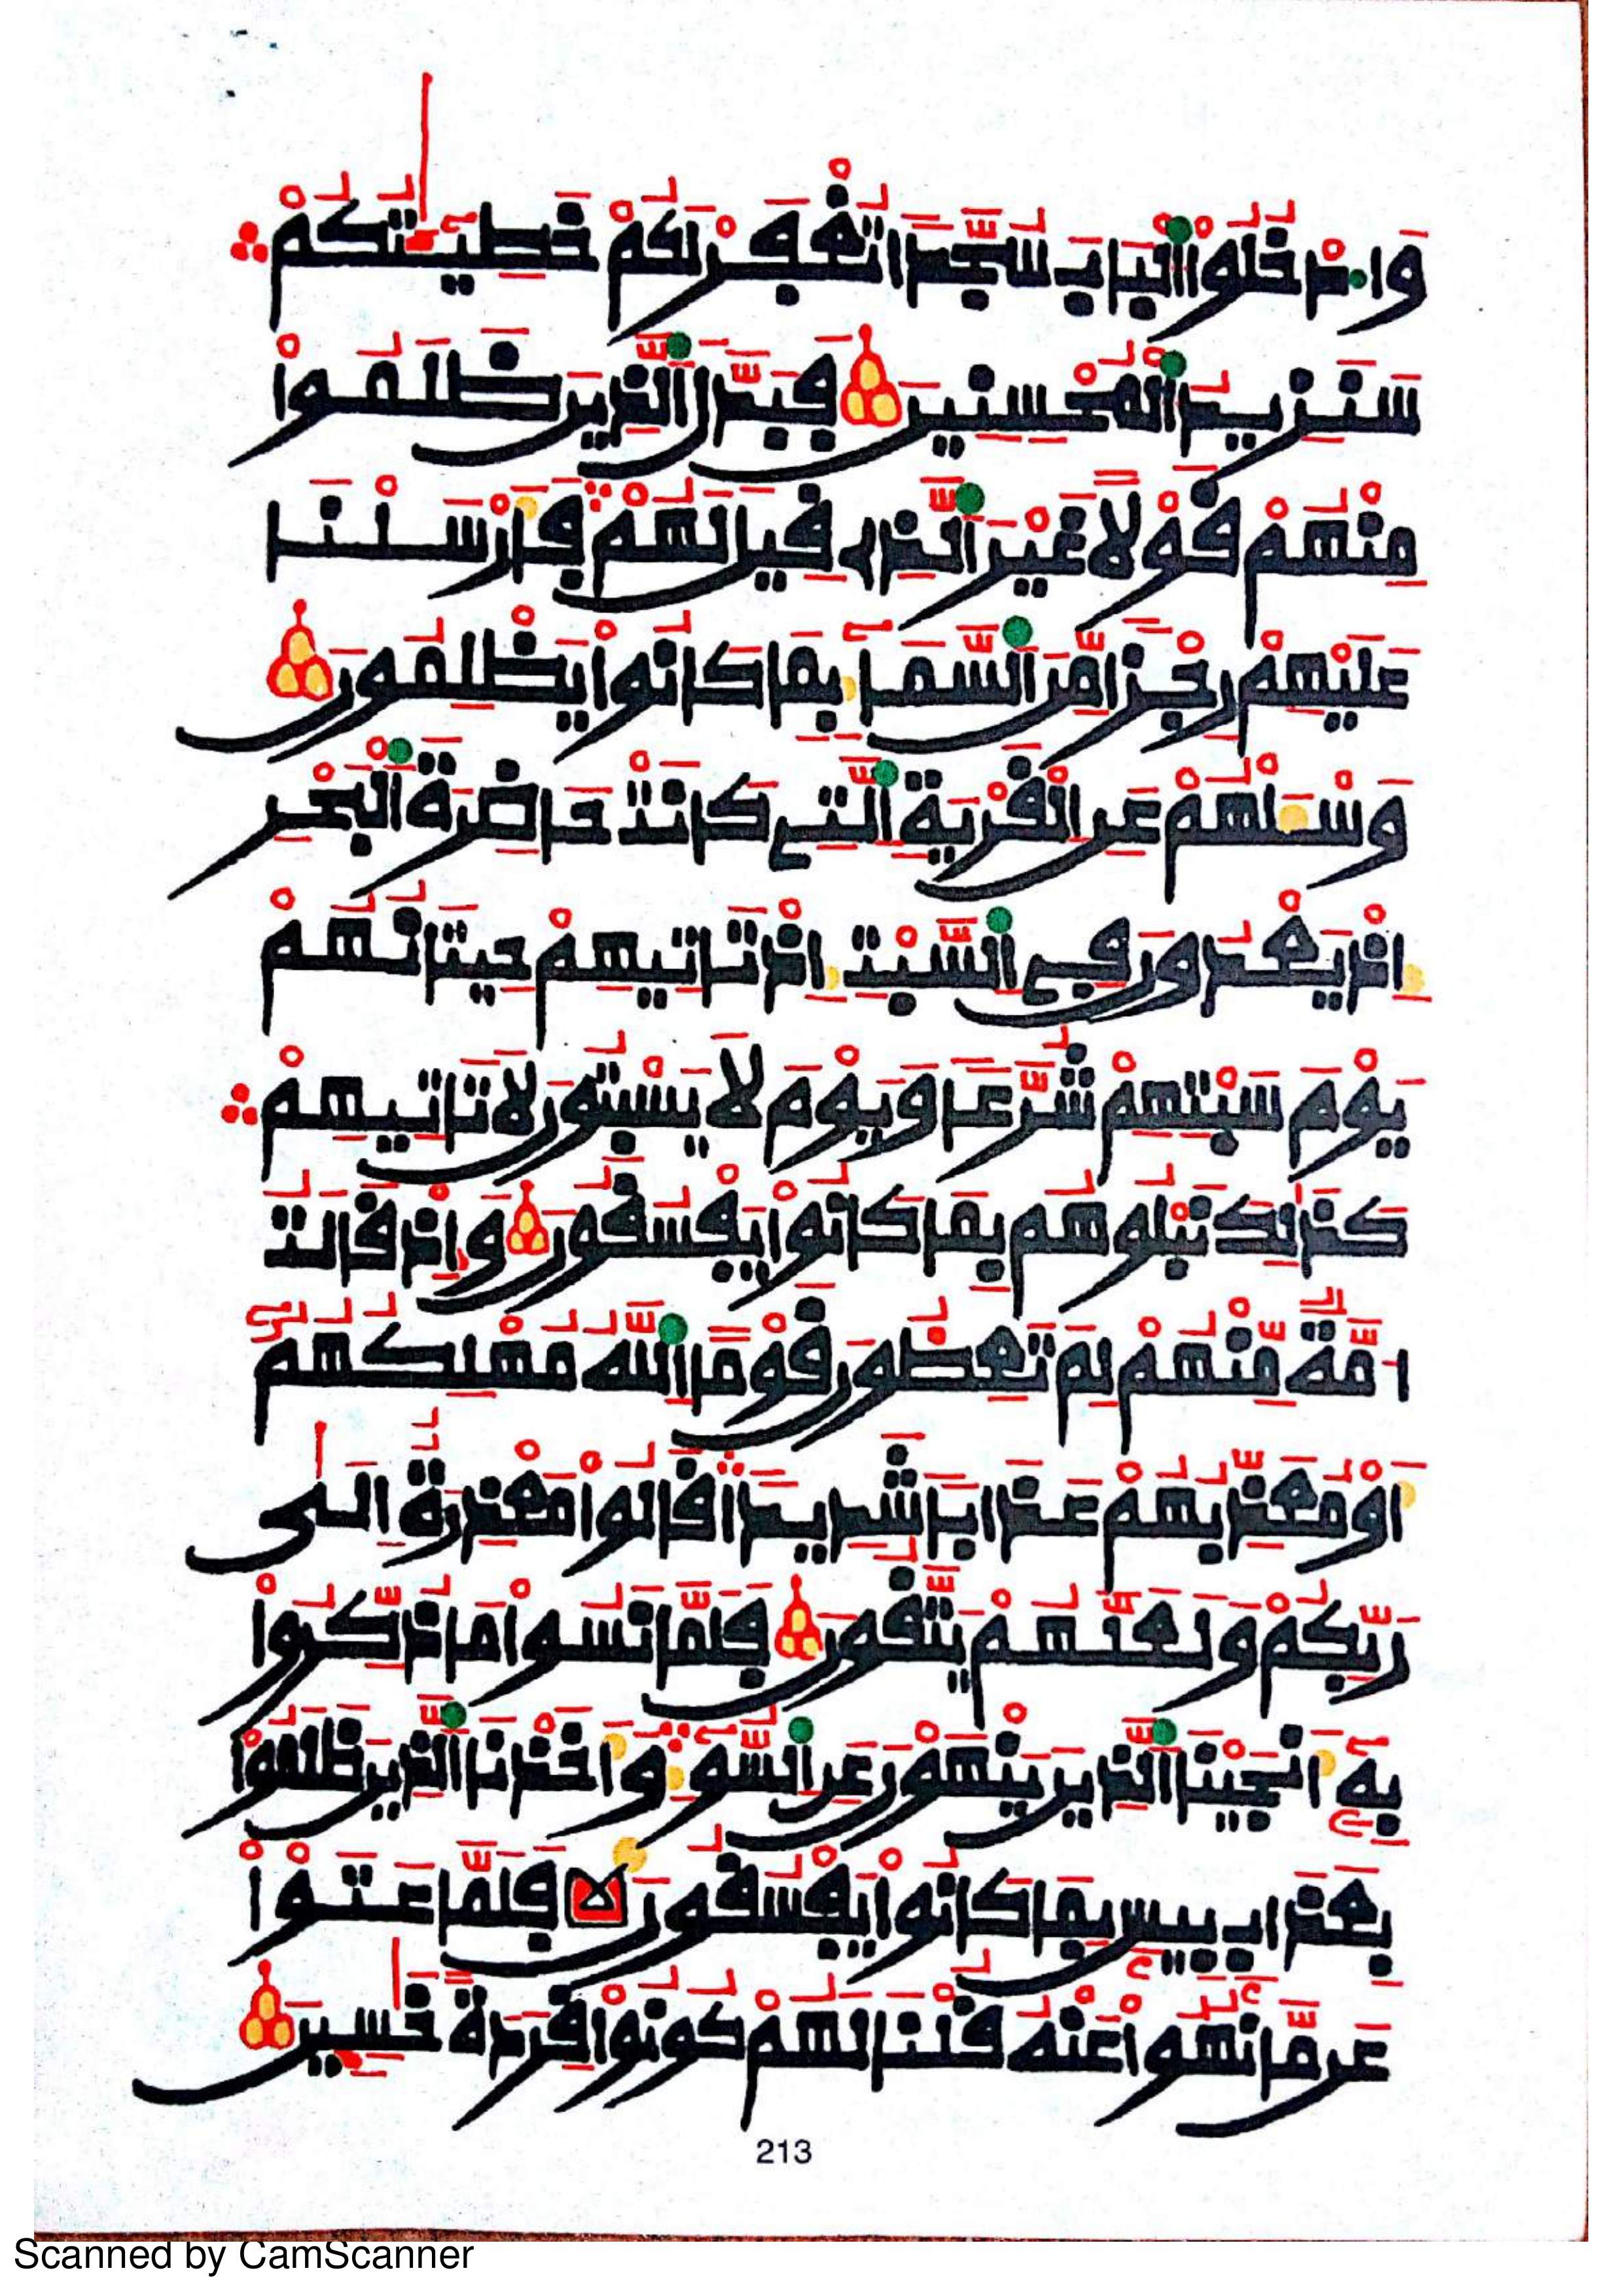 وَادْخُلُواْ الْبَابَ سُجَّدًا تُغْفَرْ لَكُمْ خَطِيٓـَٰٔتُكُمْ
سَنَزِيدُ الْمُحْسِنِينَ فَبَدَّلَ الَّذِينَ ظَلَمُواْ
مِنْهُمْ قَوْلًا غَيْرَ الَّذِي قِيلَ لَهُمْ فَأَرْسَلْنَا
عَلَيْهِمْ رِجْزًا مِّنَ السَّمَآءِ بِمَا كَانُواْ يَظْلِمُونَ
وَسْـَٔلْهُمْ عَنِ الْقَرْيَةِ الَّتِي كَانَتْ حَاضِرَةَ الْبَحْرِ
إِذْ يَعْدُونَ فِي السَّبْتِ إِذْ تَاتِيهِمْ حِيتَانُهُمْ
يَوْمَ سَبْتِهِمْ شُرَّعًا وَيَوْمَ لَا يَسْبِتُونَ لَا تَاتِيهِمْ
كَذَٰلِكَ نَبْلُوهُم بِمَا كَانُواْ يَفْسُقُونَ وَإِذْ قَالَتُ
اُمَّةٌ مِّنْهُمْ لِمَ تَعِظُونَ قَوْمًا اللَّهُ مُهْلِكُهُمُۥٓ
أَوْ مُعَذِّبُهُمْ عَذَابًا شَدِيدًا قَالُواْ مَعْذِرَةٌ اِلَىٰ
رَبِّكُمْ وَلَعَلَّهُمْ يَتَّقُونَ فَلَمَّا نَسُواْ مَا ذُكِّرُواْ
بِهِۦٓ أَنجَيْنَا الَّذِينَ يَنْهَوْنَ عَنِ السُّوٓءِ وَأَخَذْنَا الَّذِينَ ظَلَمُواْ
بِعَذَابِۭ بِيسٍ بِمَا كَانُواْ يَفْسُقُونَ فَلَمَّا عَتَوْاْ
عَن مَّا نُهُواْ عَنْهُ قُلْنَا لَهُمْ كُونُواْ قِرَدَةً خَٰسِـِٕينَ
213
Scanned by CamScanner